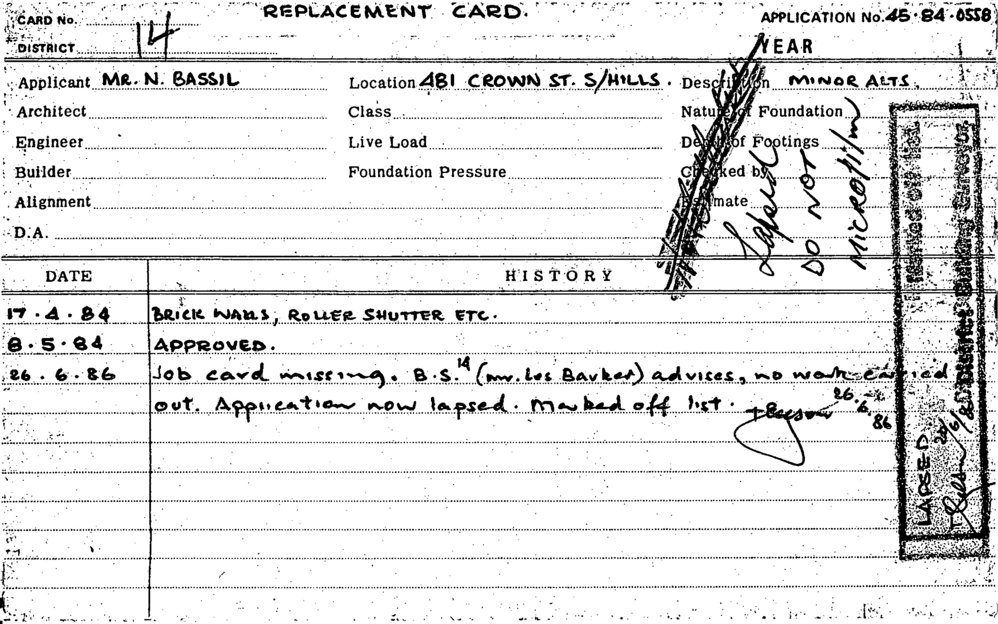 REPLACEMENT CARD.
CARD No. 14
APPLICATION No. 45·84·0558
DISTRICT
YEAR
Applicant MR. N. BASSIL Location 481 CROWN ST. S/HILLS. Description MINOR ALTS.
Architect Class Nature of Foundation
Engineer Live Load Depth of Footings
Builder Foundation Pressure Checked by
Alignment Estimate
D.A.
Lapsed
DO NOT
MICROFILM
DATE HISTORY
17.4.84 BRICK WALLS, ROLLER SHUTTER ETC.
8.5.84 APPROVED.
26.6.86 Job card missing. B.S.14 (Mr. Les Barker) advises, no work carried
out. Application now lapsed. Marked off list. 26.6.86
Marked off list
District Building Surveyor
LAPSED